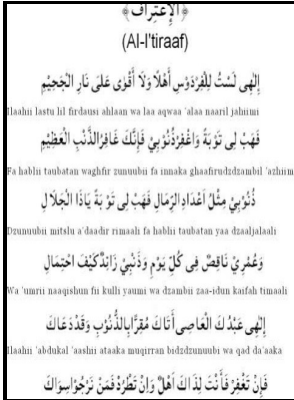 ﴿الْإِعْتِرَاف﴾
(Al-I'tiraaf)
إِلٰهِى لَسْتُ لِلْفِرْدَوْسِ أَهْلًا وَلَا أَقْوَى عَلَى نَارِ الْجَحِيْمِ
Ilaahii lastu lil firdausi ahlaan wa laa aqwaa 'alaa naaril jahiimi
فَهَبْ لِى تَوْبَةً وَاغْفِرْ ذُنُوْبِيْ فَإِنَّكَ غَافِرُ الذَّنْبِ الْعَظِيْمِ
Fa hablii taubatan waghfir zunuubii fa innaka ghaafirudzdzambil 'azhiimi
ذُنُوْبِيْ مِثْلُ أَعْدَادِ الرِّمَالِ فَهَبْ لِى تَوْبَةً يَاذَا الْجَلَالِ
Dzunuubii mitslu a'daadir rimaali fa hablii taubatan yaa dzaaljalaali
وَعُمْرِيْ نَاقِصٌ فِى كُلِّ يَوْمٍ وَذَنْبِيْ زَائِدٌ كَيْفَ احْتِمَالِ
Wa 'umrii naaqishun fii kulli yaumi wa dzambii zaa-idun kaifah timaali
إِلٰهِى عَبْدُكَ الْعَاصِى أَتَاكَ مُقِرًّا بِالذُّنُوْبِ وَقَدْ دَعَاكَ
Ilaahii 'abdukal 'aashii ataaka muqirran bidzdzunuubi wa qad da'aaka
فَإِنْ تَغْفِرْ فَأَنْتَ لِذَاكَ أَهْلٌ وَإِنْ تَطْرُدْ فَمَنْ نَرْجُوْ سِوَاكَ